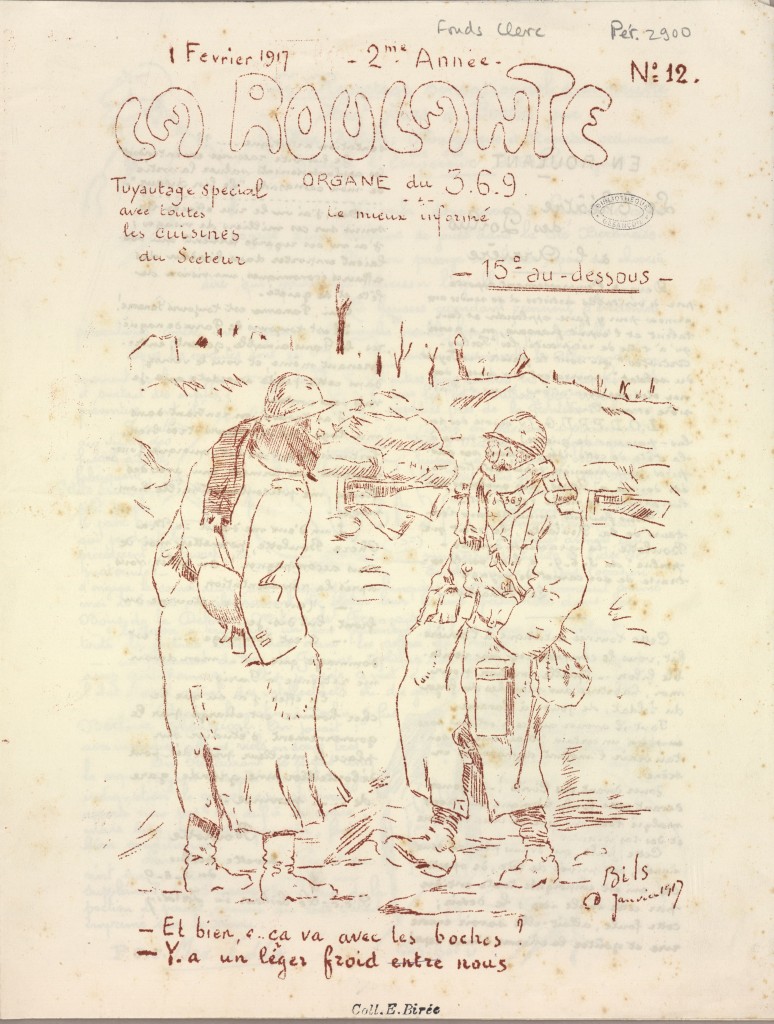 Fonds Clerc
Pét. 2900
1 Fevrier 1917
- 2me Année -
No 12.
LA ROULANTE
Tuyautage spécial
avec toutes
les cuisines
du Secteur
ORGANE du 3.6.9.
le mieux informé
- 15° au-dessous -
369
Bils
Janvier 1917
- Et bien, .. ça va avec les boches ?
- Y. a un léger froid entre nous
Coll. E. Birée